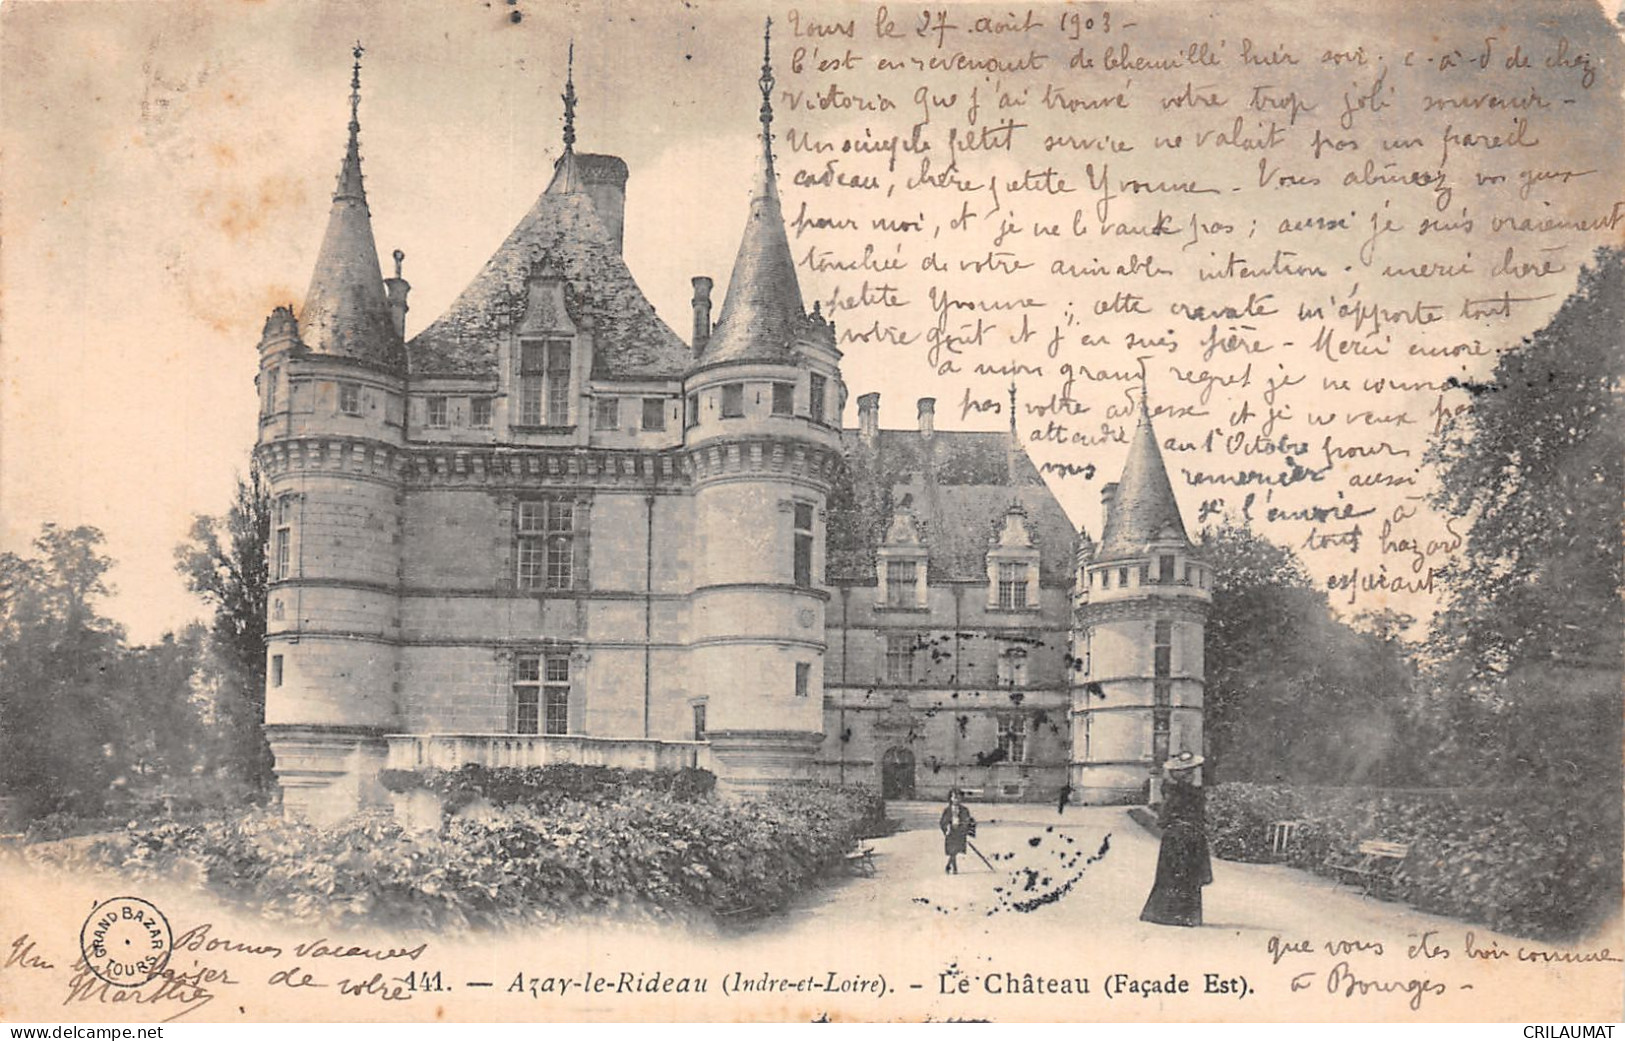 Tours le 27 août 1903 -
C'est en revenant de Chemillé hier soir, c-à-d de chez
Victoria que j'ai trouvé votre trop joli souvenir -
Un simple petit service ne valait pas un pareil
cadeau, chère petite Yvonne - Vous abîmez vos yeux
pour moi, et je ne le vaux pas ; aussi je suis vraiement
touchée de votre aimable intention. merci chère
petite Yvonne ; cette cravate m'apporte tout
votre goût et j'en suis fière - Merci encore.
à mon grand regret je ne connais
pas votre adresse et je ne veux pas
attendre au 1er Octobre pour
vous remercier aussi
je l'envoie à
tout hazard
espérant
que vous êtes bien comme
à Bourges -
Bonnes vacances
Un bon baiser de votre
Marthe
GRAND BAZAR
TOURS
141. — Azay-le-Rideau (Indre-et-Loire). - Le Château (Façade Est).
CRILAUMAT